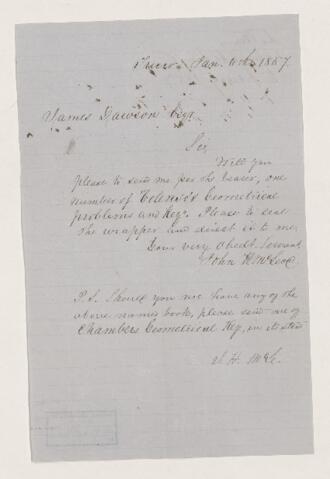 Jan. 1867.
James Dawson Esqr.
Sir,
Will you
please to send me per the bearer, one
number of Geometrical
problems and Key. Please to seal
the wrapper and direct it to me,
Your very Obedt. Servant,
John H. McLeod
P.S. Should you not have any of the
above named book, please send me
Chambers Geometrical Key, in its stead
J. H. McL.